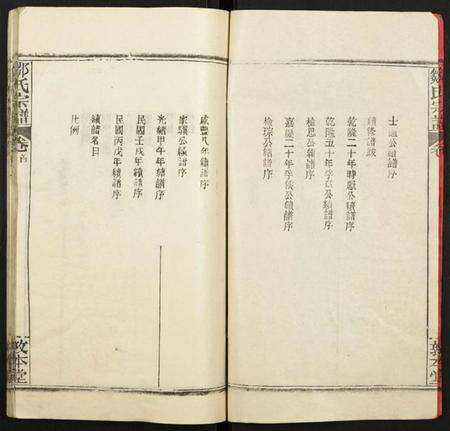 士□公續譜序
續修譜跋
乾隆二十年時□公續譜序
乾隆五十年孚□公續譜序
植思公續譜序
嘉慶二十年孚侯公續譜序
檢琮公續譜序
咸豐八年續譜序
家驥公續譜序
光緒甲午年續譜序
民國壬戌年續譜序
民國丙戌年續譜序
續譜名目
凡例
鄭氏宗譜
卷首
敦本堂